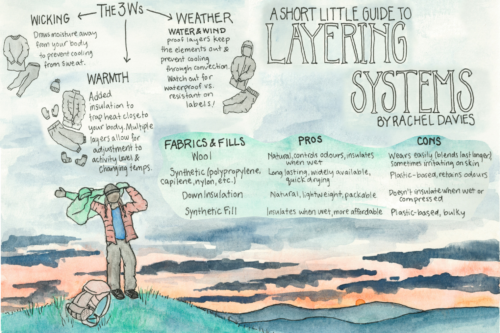 THE 3 Ws
WICKING
Draws moisture away
from your body
to prevent cooling
from sweat.
WARMTH
Added
insulation to
trap heat close to
your body. Multiple
layers allow for
adjustment to
activity level &
changing temps.
WEATHER
WATER & WIND
proof layers keep
the elements out &
prevent cooling
through convection.
Watch out for
waterproof vs.
resistant on
labels!
A SHORT LITTLE GUIDE TO
LAYERING
SYSTEMS
BY RACHEL DAVIES
FABRICS & FILLS PROS CONS
Wool Natural, controls odours, insulates
when wet Wears easily (blends last longer),
sometimes irritating on skin
Synthetic (polypropylene,
capilene, nylon, etc.) Long lasting, widely available,
quick drying Plastic-based, retains odours
Down Insulation Natural, lightweight, packable Doesn't insulate when wet or
compressed
Synthetic Fill Insulates when wet, more affordable Plastic-based, bulky